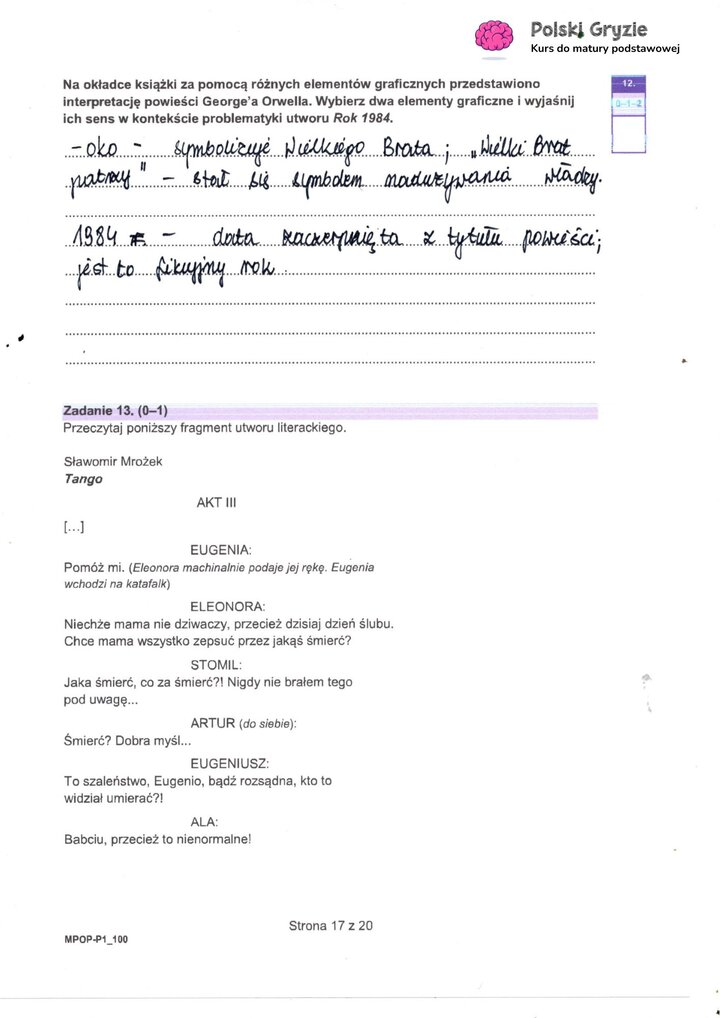 Polski Gryzie
Kurs do matury podstawowej
Na okładce książki za pomocą różnych elementów graficznych przedstawiono
interpretację powieści George'a Orwella. Wybierz dwa elementy graficzne i wyjaśnij
ich sens w kontekście problematyki utworu Rok 1984.
12.
0–1–2
- oko - symbolizuje Wielkiego Brata ; „Wielki Brat
patrzy" - stał się symbolem nadużywania władzy.
1984 - data zaczerpnięta z tytułu powieści;
jest to fikcyjny rok.
Zadanie 13. (0–1)
Przeczytaj poniższy fragment utworu literackiego.
Sławomir Mrożek
Tango
AKT III
[...]
EUGENIA:
Pomóż mi. (Eleonora machinalnie podaje jej rękę. Eugenia
wchodzi na katafalk)
ELEONORA:
Niechże mama nie dziwaczy, przecież dzisiaj dzień ślubu.
Chce mama wszystko zepsuć przez jakąś śmierć?
STOMIL:
Jaka śmierć, co za śmierć?! Nigdy nie brałem tego
pod uwagę...
ARTUR (do siebie):
Śmierć? Dobra myśl...
EUGENIUSZ:
To szaleństwo, Eugenio, bądź rozsądna, kto to
widział umierać?!
ALA:
Babciu, przecież to nienormalne!
Strona 17 z 20
MPOP-P1_100